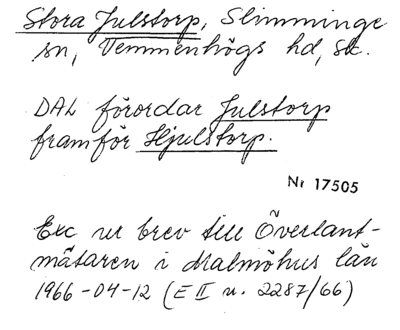 Stora Julstorp, Slimminge
sn, Vemmenhögs hd, Sk.
DAL förordar Julstorp
framför Hjulstorp.
Nr 17505
Exc ur brev till Överlant-
mätaren i Malmöhus län
1966-04-12 (E II u. 2287/66)